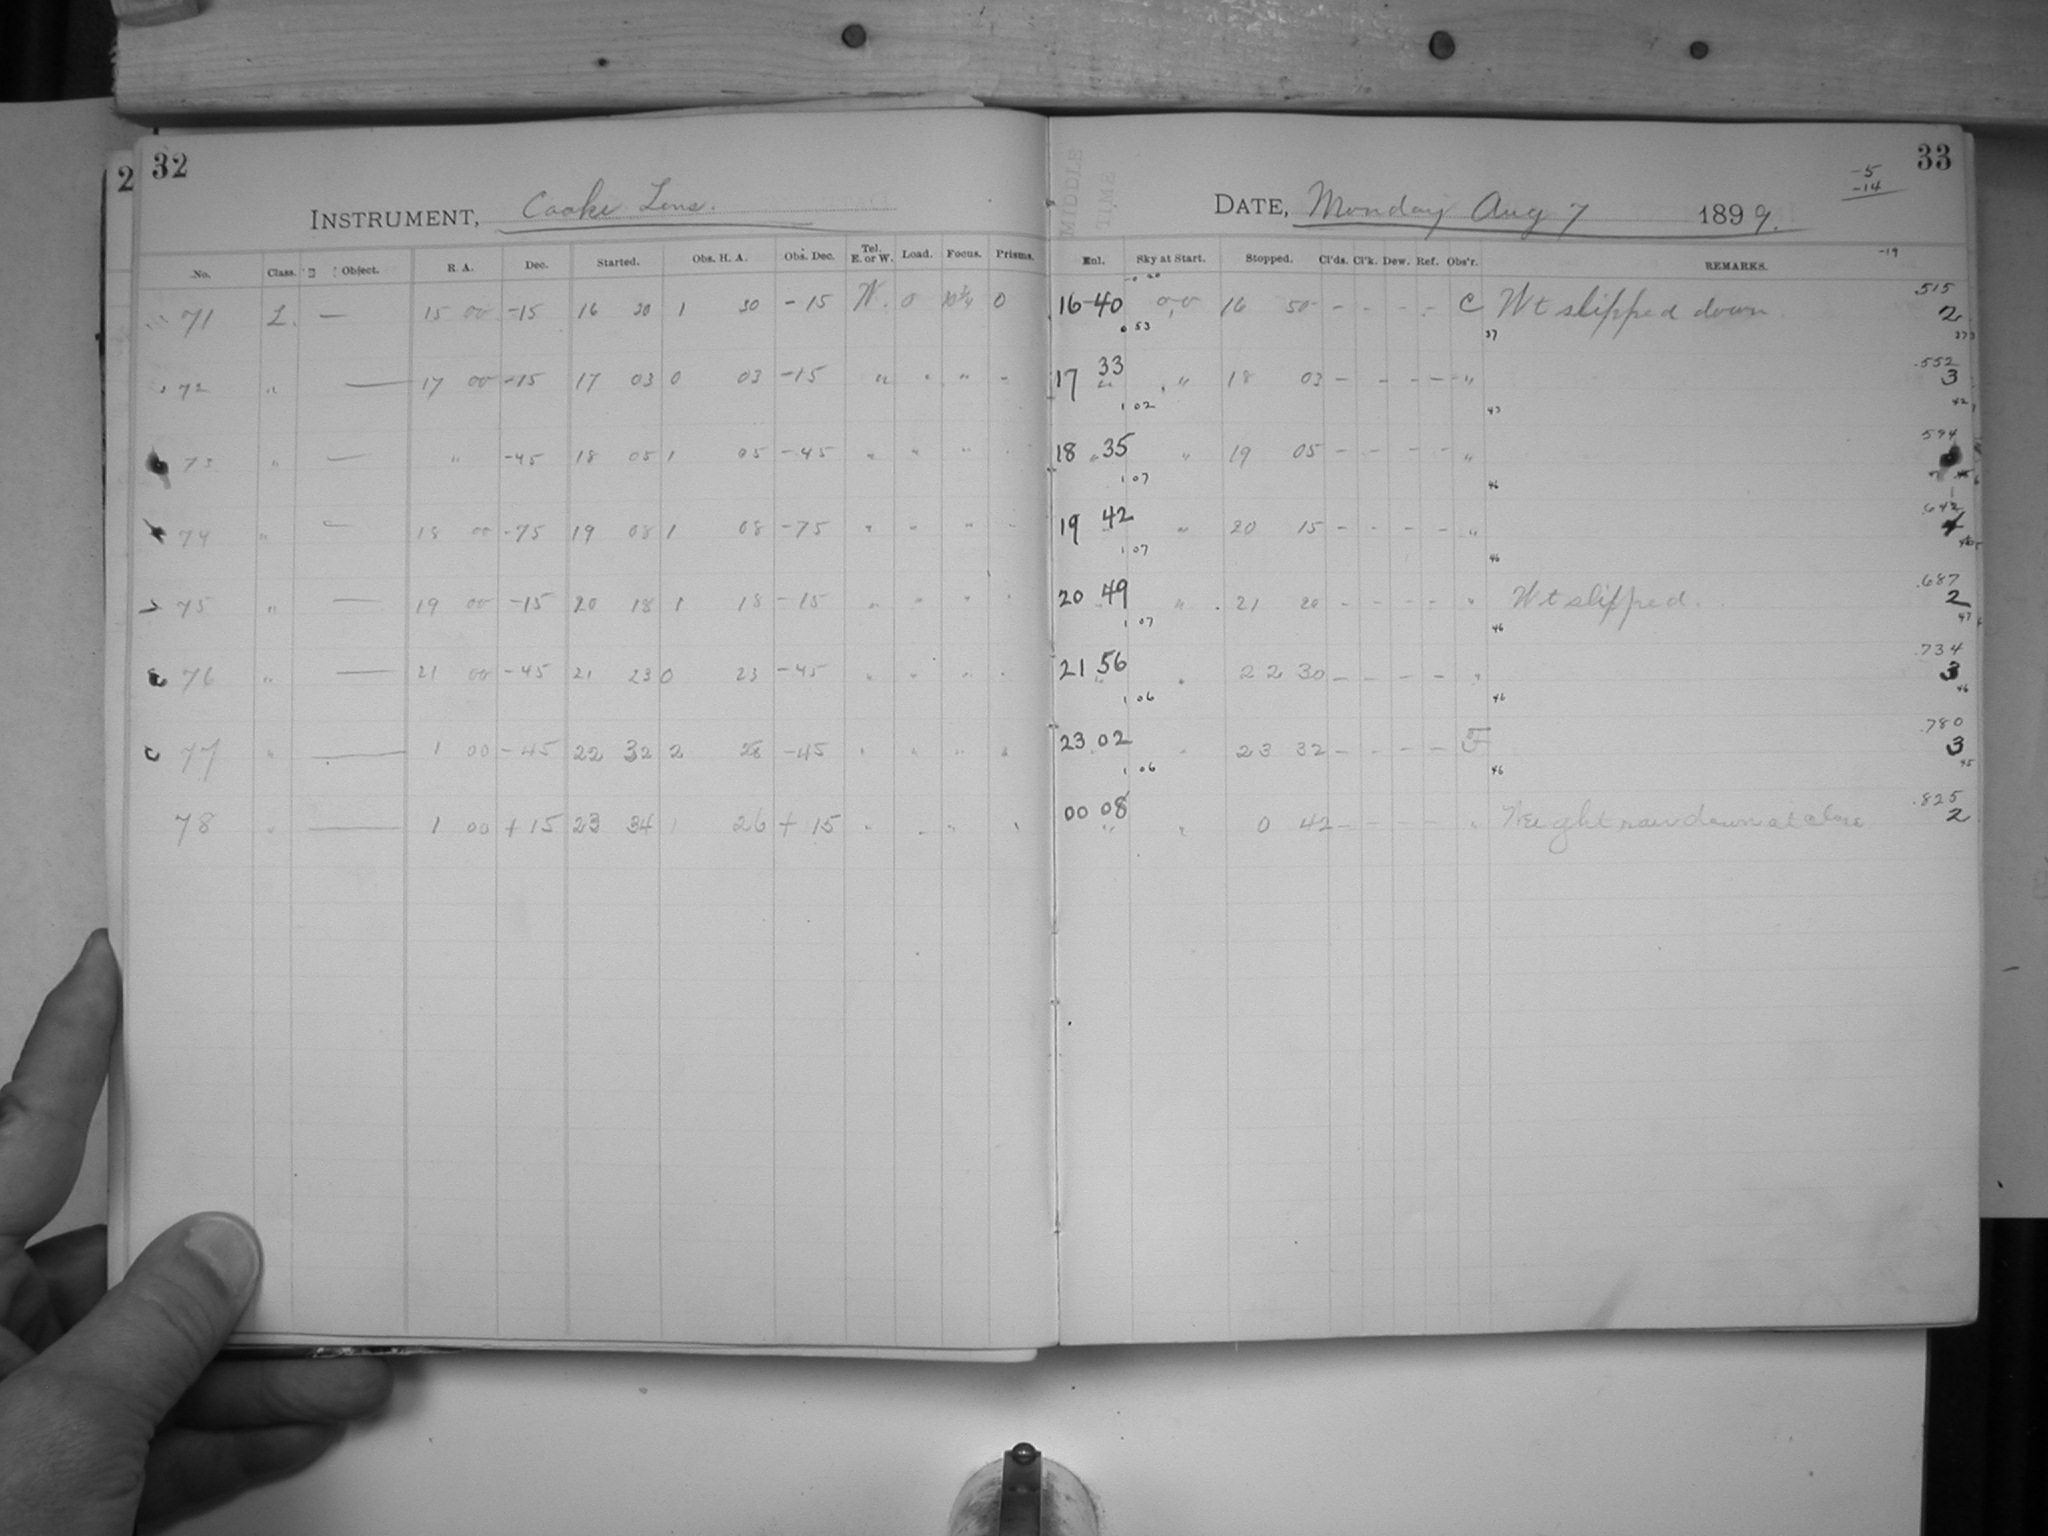 2
32
INSTRUMENT, Cooke Lens.
No. Class. Object. R. A. Dec. Started. Obs. H. A. Obs. Dec. Tel. E. or W. Load. Focus. Prisms.
71 L. — 15 00 -15 16 30 1 30 -15 W. 0 0
72 " — 17 00 -15 17 03 0 03 -15 " " " -
73 " — " -45 18 05 1 05 -45 " " " "
74 " — 18 00 -75 19 08 1 08 -75 " " " -
75 " — 19 00 -15 20 18 1 18 -15 " " " "
76 " — 21 00 -45 21 23 0 23 -45 " " " "
77 " — 1 00 -45 22 32 2 28 -45 " " " "
78 " — 1 00 +15 23 34 1 26 +15 " " " "
MIDDLE TIME
33
-5
-14
-19
DATE, Monday Aug 7 1899.
Enl. Sky at Start. Stopped. Cl'ds. Cl'k. Dew. Ref. Obs'r. REMARKS.
16 40 0,0 16 50 - - - - C Wt slipped down. .515 2
0 53 37
17 33 " 18 03 - - - - " .552 3
1 02 43 42
18 35 " 19 05 - - - - " .594
1 07 46
19 42 " 20 15 - - - - " .642
1 07 46
20 49 " 21 20 - - - - " Wt slipped. .687 2
1 07 46 47
21 56 " 22 30 - - - - " .734 3
1 06 46 46
23 02 " 23 32 - - - - F .780 3
1 06 46 45
00 08 " 0 42 - - - - " Weight ran down at close .825 2